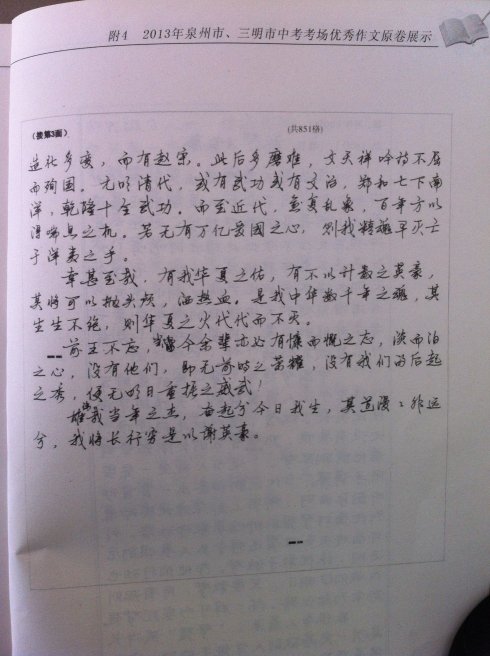 附4 2013年泉州市、三明市中考考场优秀作文原卷展示
(接第3面)
(共851格)
造化多变，而有赵宋。此后多磨难，文天祥吟诗不屈
而殉国。元明清代，或有武功或有文治，郑和七下南
洋，乾隆十全武功。而至近代，意乱象，百年方以
得喘息之机。若无有万亿爱国之心，则我精魂早灭亡
于洋夷之手。
幸甚至哉，有我华夏之佑，有不以计数之英豪，
其将可以抛头颅，洒热血。是我中华数千年之魂，其
生生不绝，则华夏之火代代而不灭。
前王不忘，今余辈亦必有慷而慨之志，淡而泊
之心，没有他们，即无前时之荣耀，没有我们的后起
之秀，便无明日重振之威武！
雄我当年之志，奋起于今日我生，莫道漫：作运
兮，我将长行穷是以谢英豪。